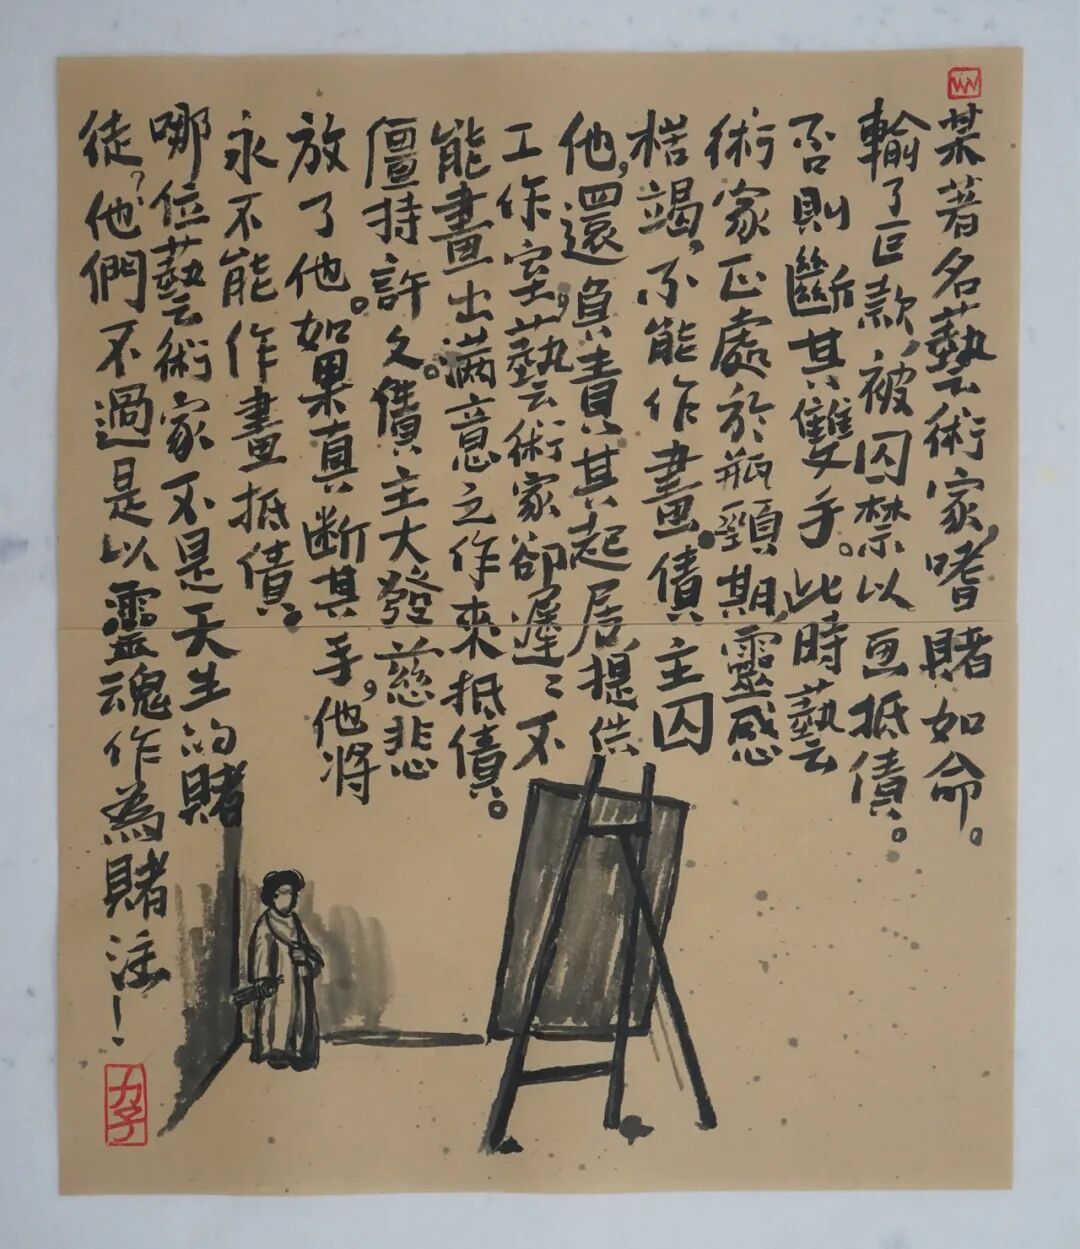 某著名藝術家,嗜賭如命。
輸了巨款,被囚禁以画抵債。
否則斷其雙手。此時藝
術家正處於瓶頸期,靈感
枯竭,不能作畫。債主囚
他,還負責其起居,提供
工作室,藝術家卻遲遲不
能畫出滿意之作來抵債。
僵持許久。債主大發慈悲
放了他。如果真断其手,他將
永不能作畫抵債。
哪位藝術家不是天生的賭
徒,他們不過是以靈魂作為賭注!